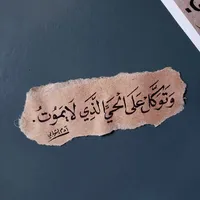 وَتَوَكَّلْ عَلَى الْحَيِّ الَّذِي لَا يَمُوتُ.